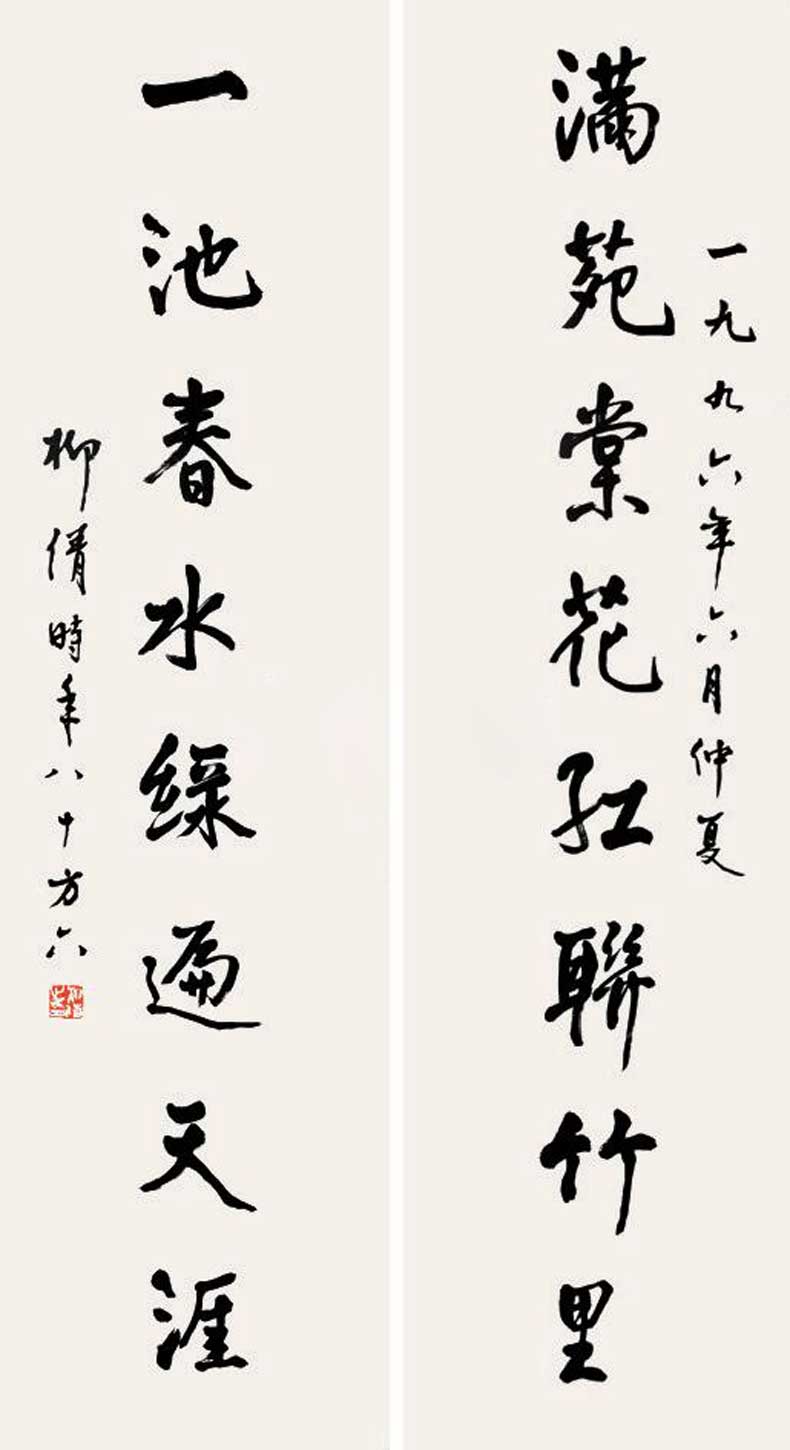 一九九六年六月仲夏
滿苑棠花红聯竹里
一池春水綠遍天涯
柳倩時年八十方六